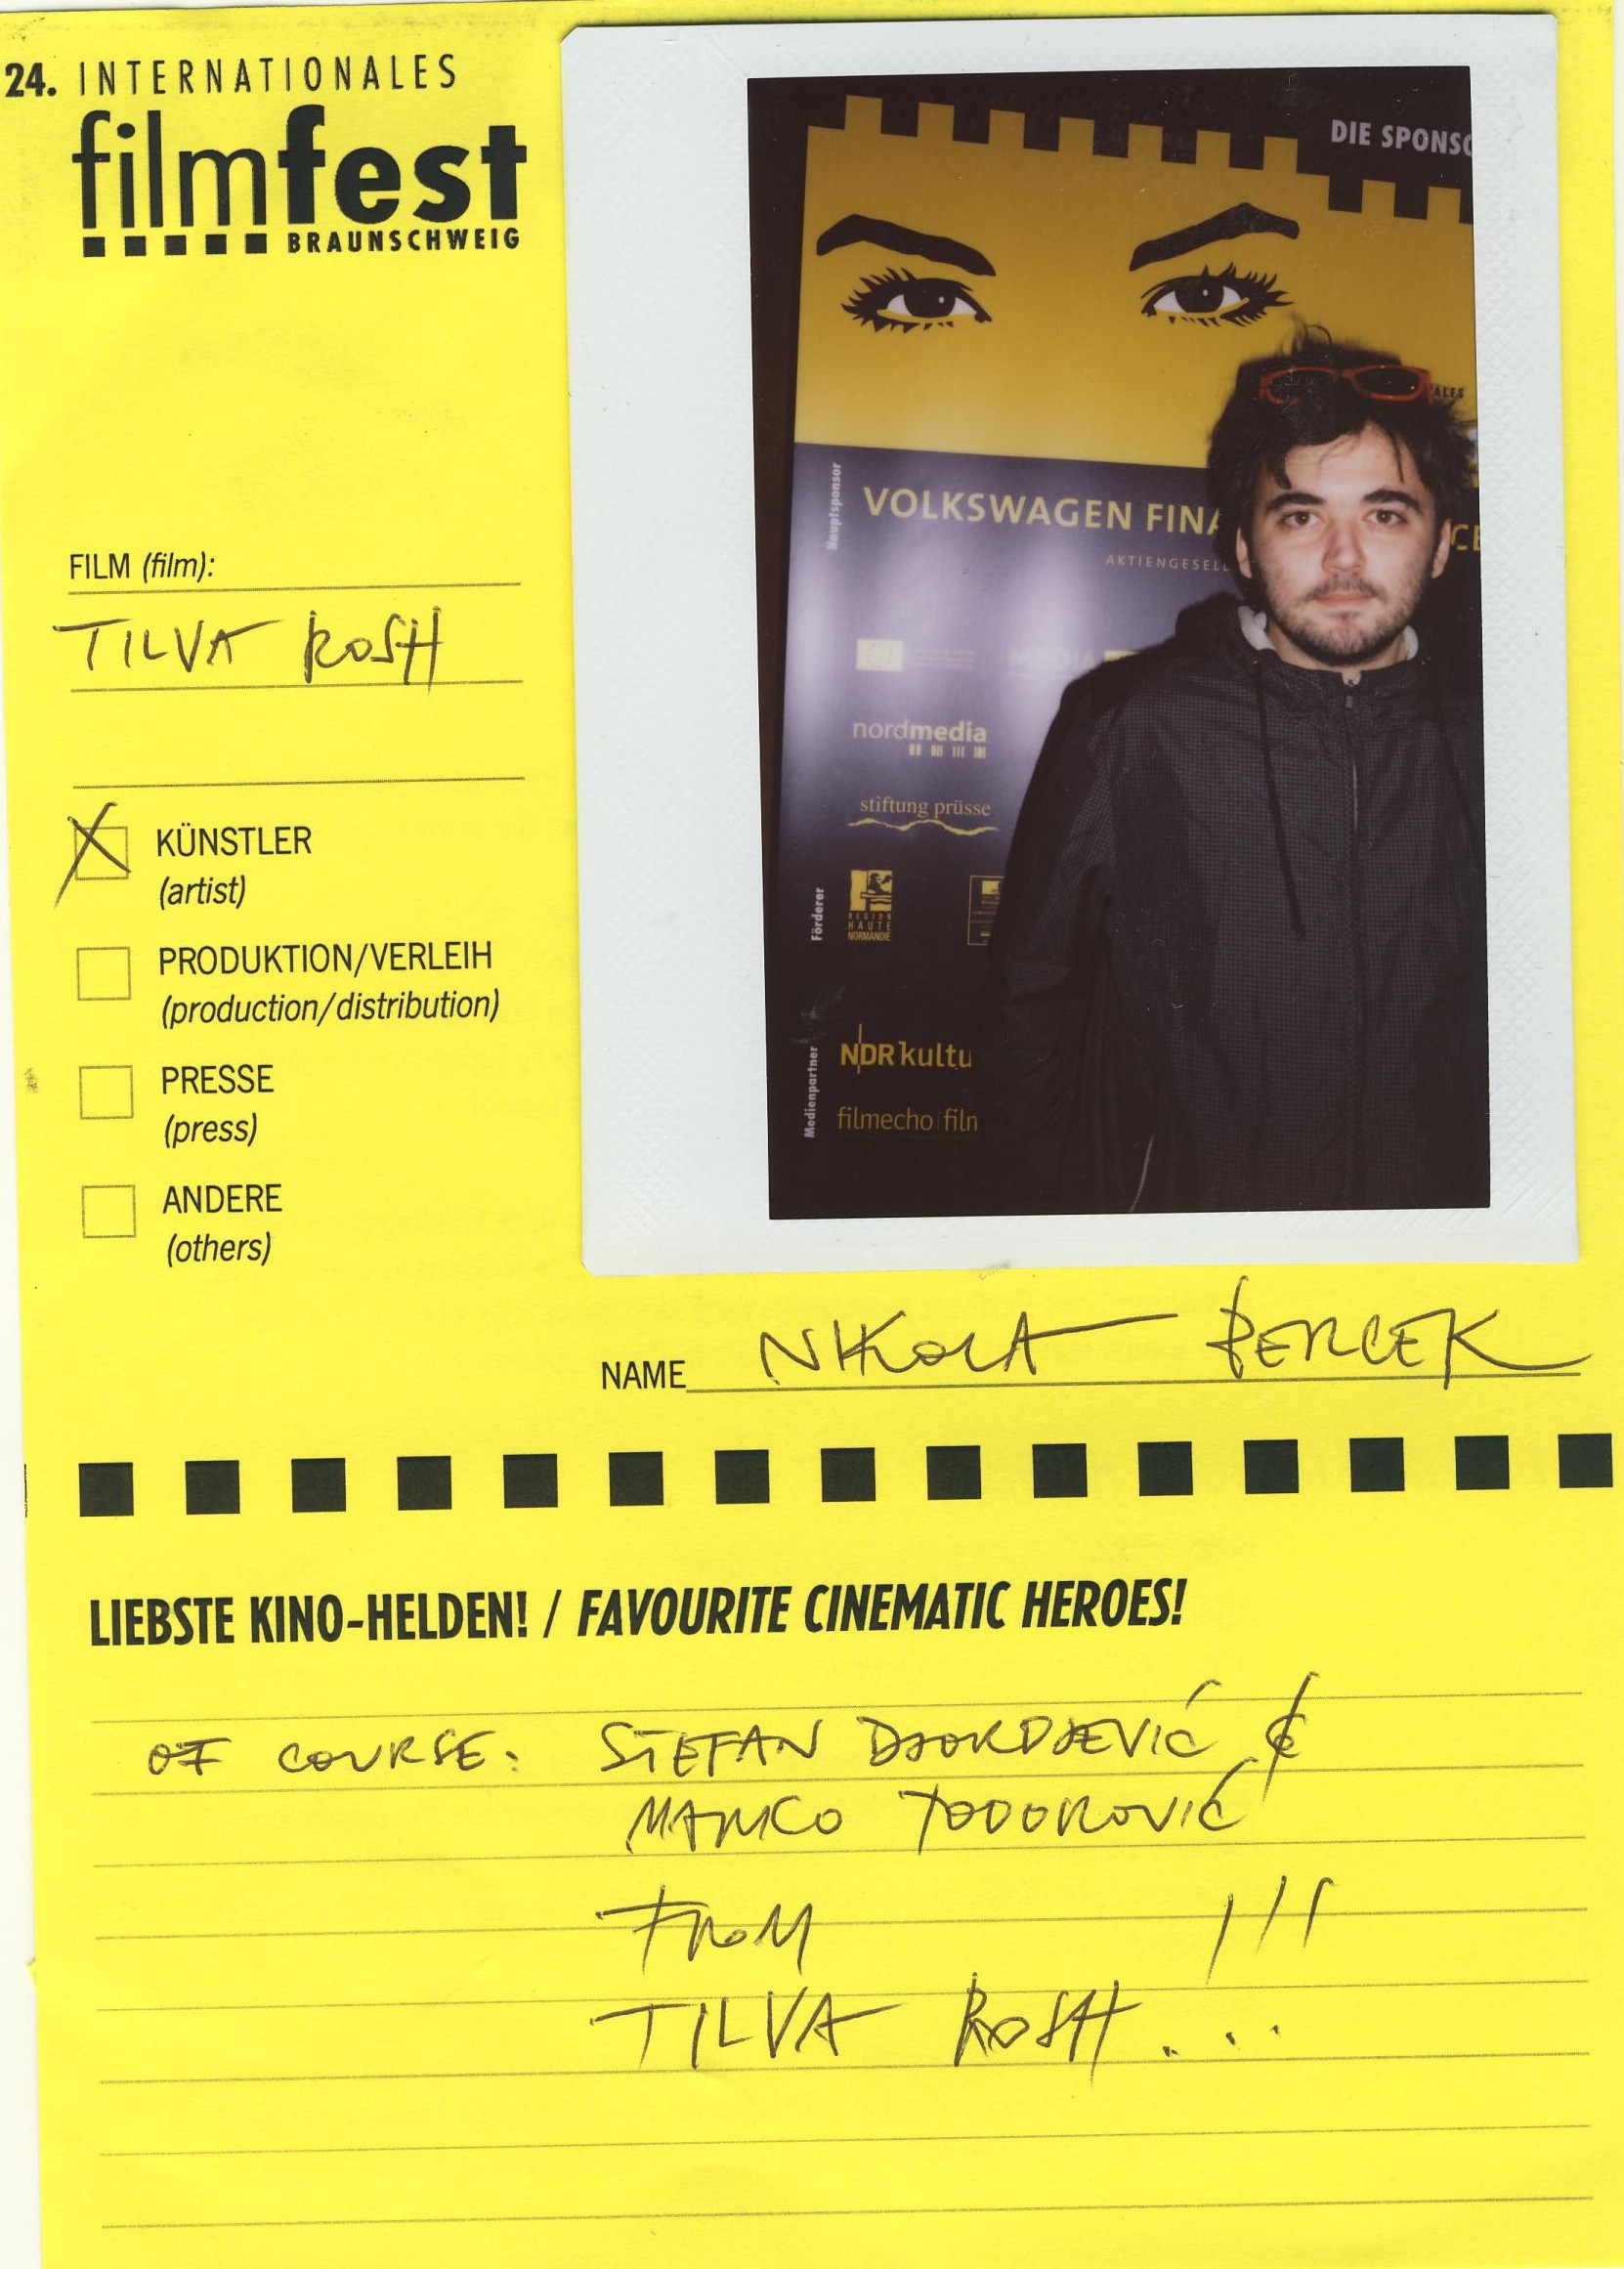 24. INTERNATIONALES
filmfest
BRAUNSCHWEIG
FILM (film):
TILVA ROSH
KÜNSTLER
(artist)
PRODUKTION/VERLEIH
(production/distribution)
PRESSE
(press)
ANDERE
(others)
DIE SPONSO
ALES
Hauptsponsor
VOLKSWAGEN FINA
CE
AKTIENGESELL
MEDIA
nordmedia
stiftung prüsse
Förderer
REGION
HAUTE
NORMANDIE
Medienpartner
NDR kultu
filmecho film
NAME NIKOLA BERCEK
LIEBSTE KINO-HELDEN! / FAVOURITE CINEMATIC HEROES!
OF COURSE: STEFAN DJORDJEVIĆ &
MARKO TODOROVIĆ
FROM !!!
TILVA ROSH...